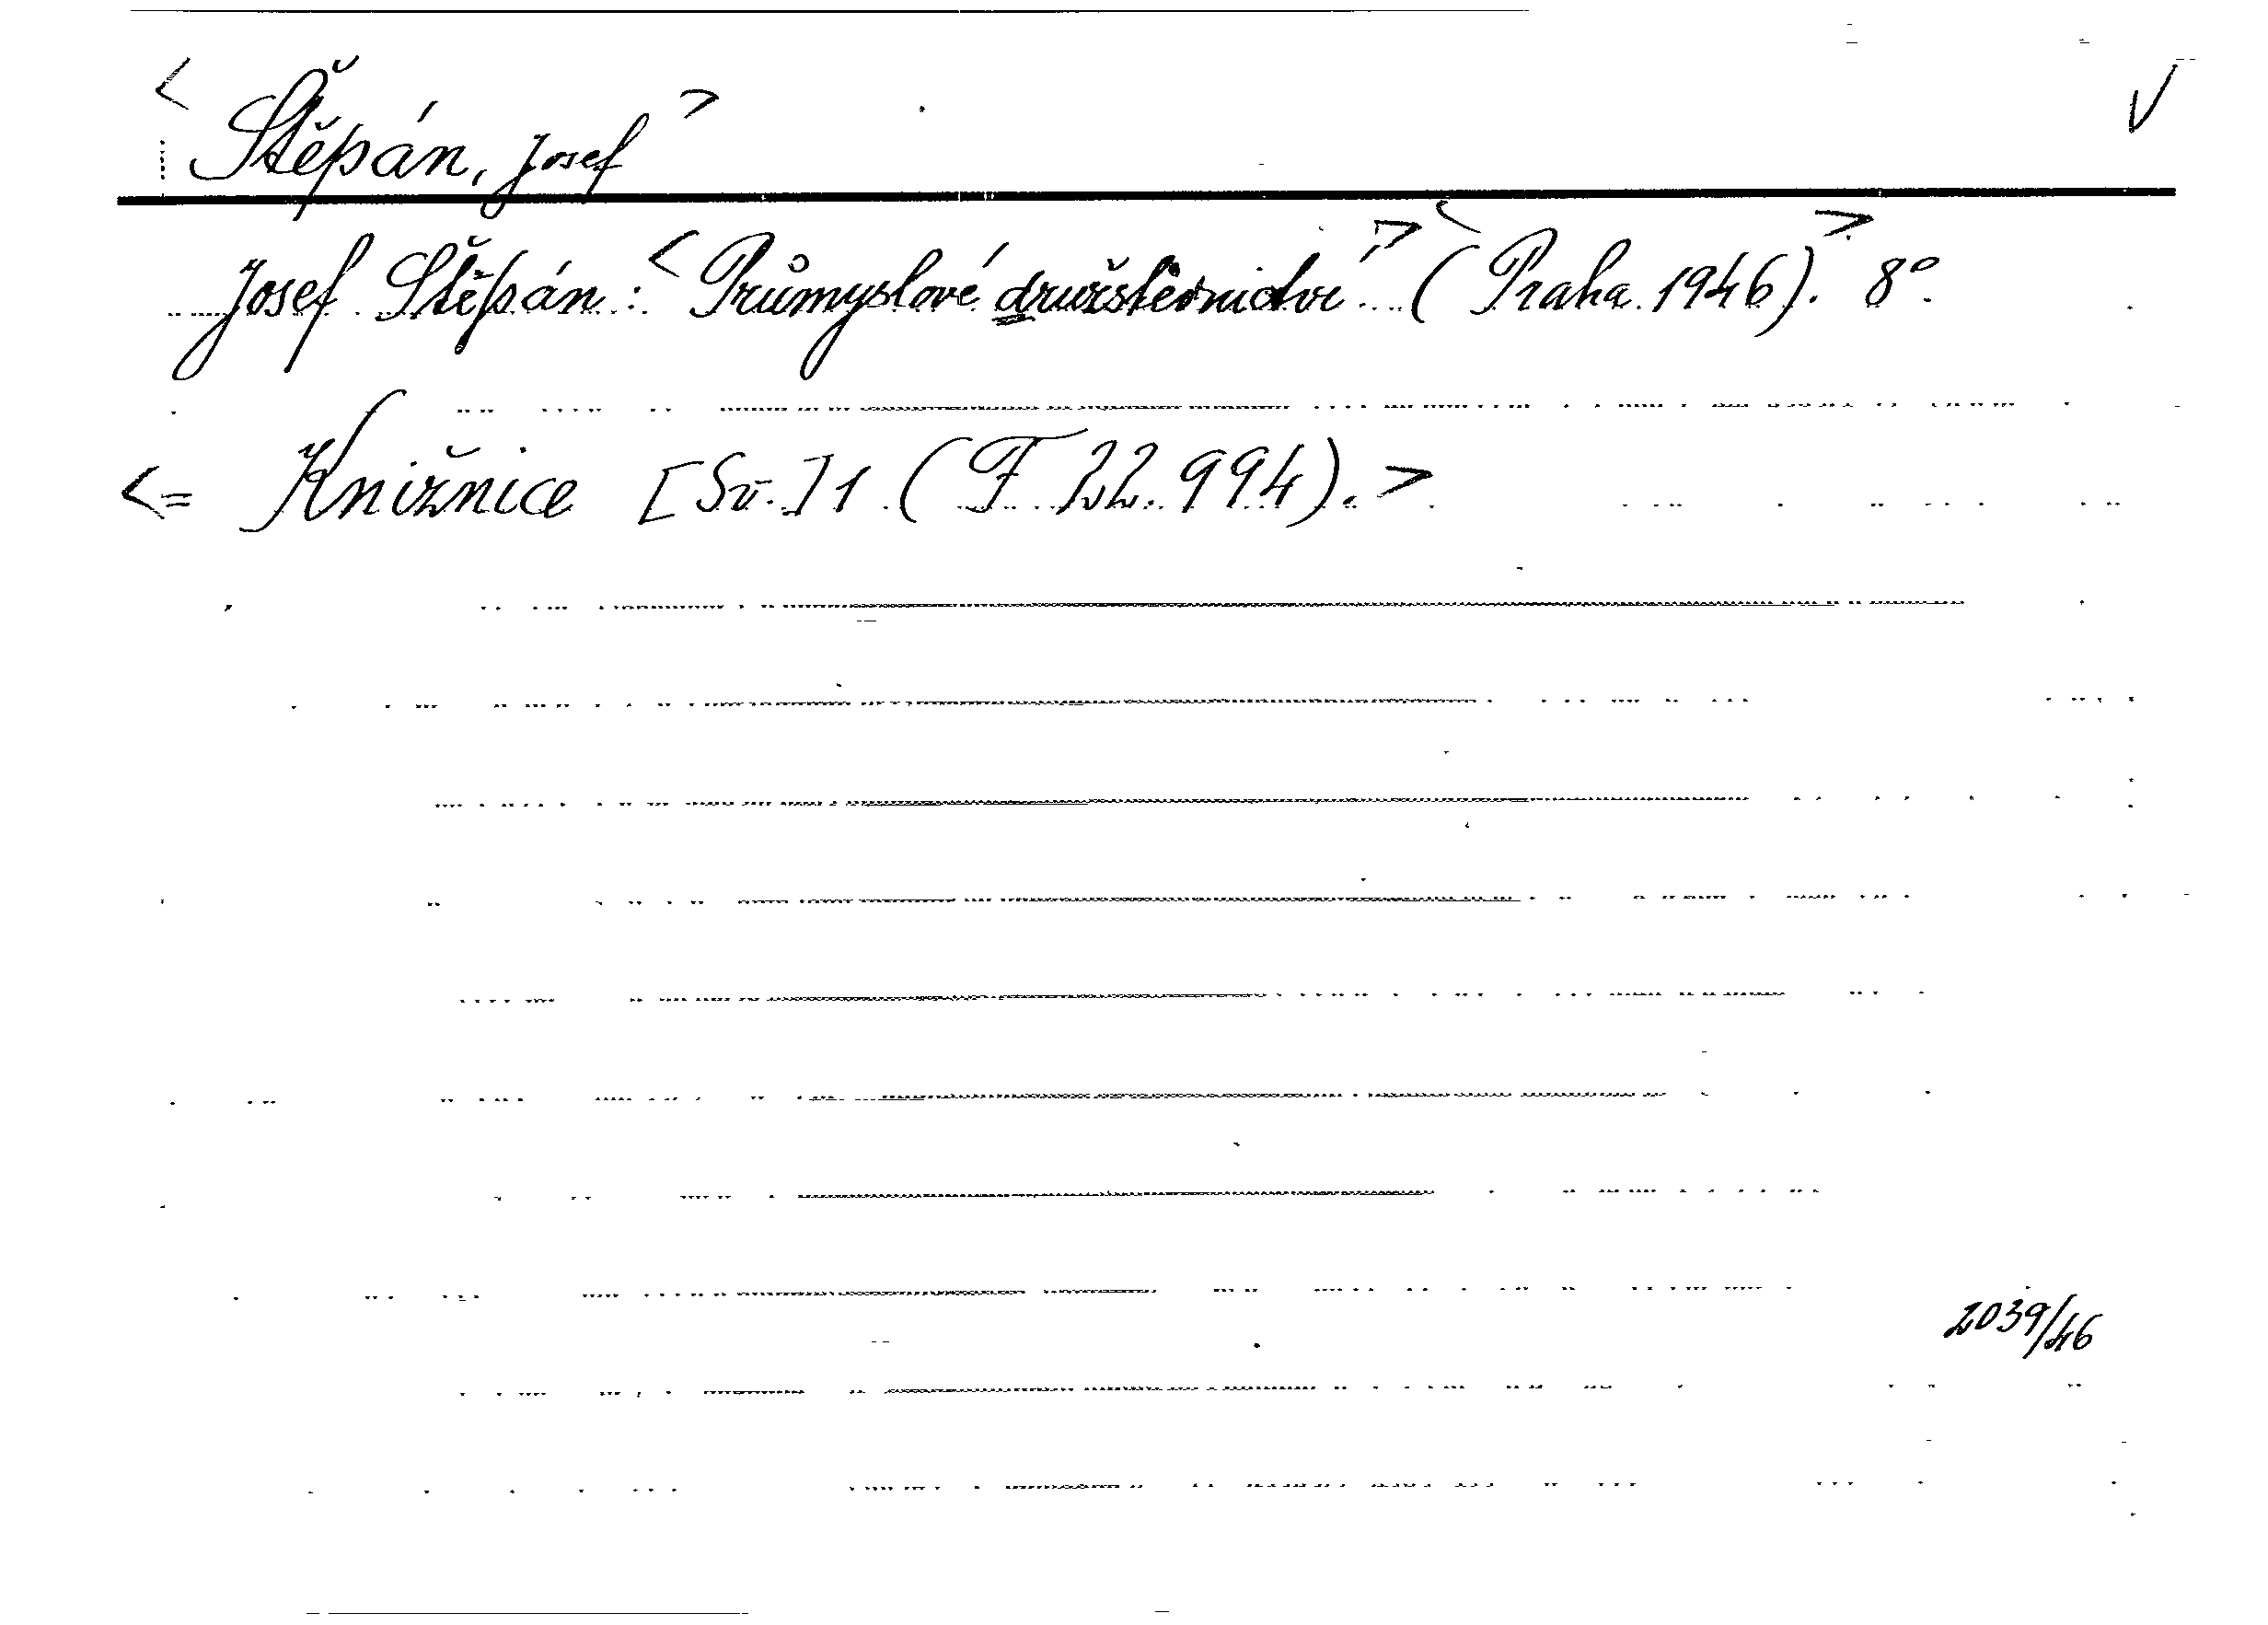 < Štěpán, Josef > √
Josef Štěpán: < Průmyslové družstevnictví. > < (Praha 1946). > 8°.
<= Knižnice [Sv.] 1 (F 22.994). >
2039/46